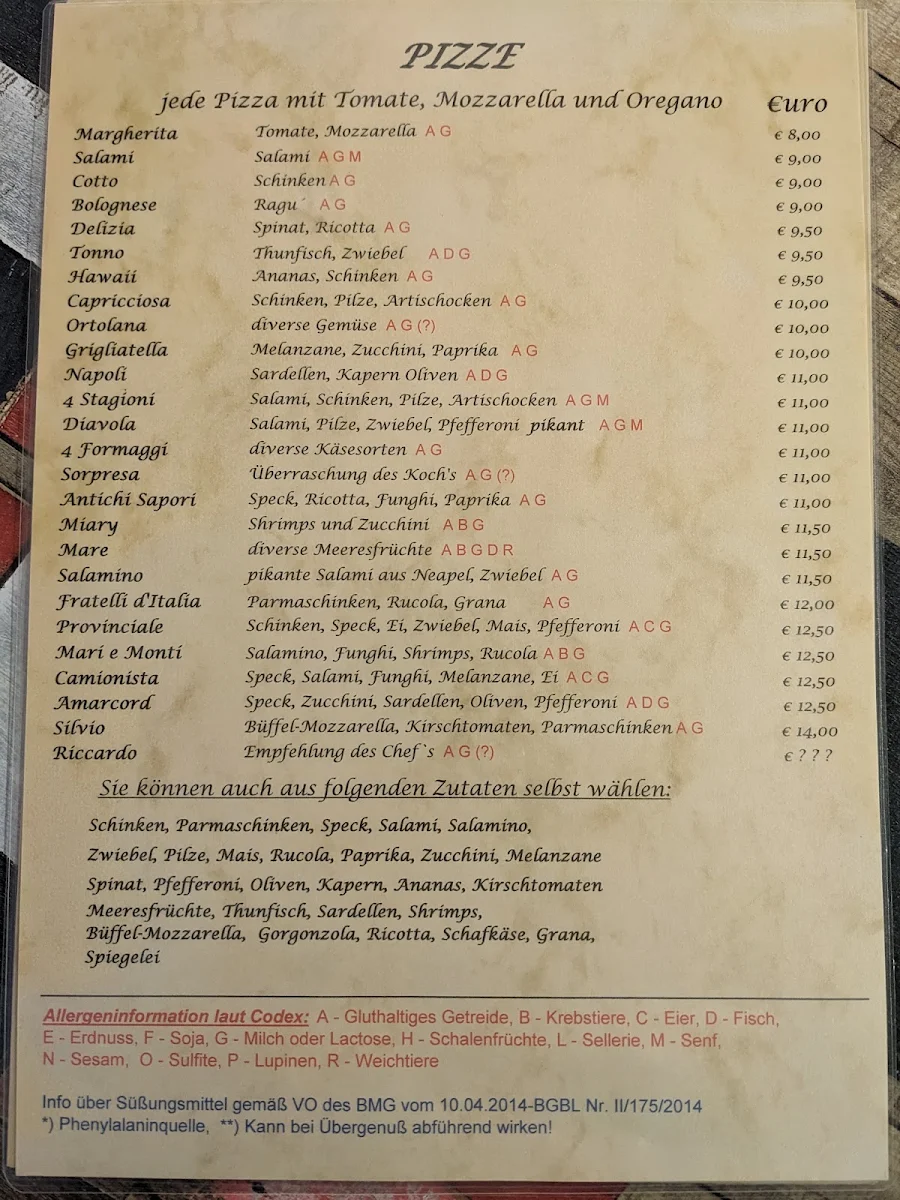 PIZZE
jede Pizza mit Tomate, Mozzarella und Oregano €uro
Margherita Tomate, Mozzarella A G € 8,00
Salami Salami A G M € 9,00
Cotto Schinken A G € 9,00
Bolognese Ragu´ A G € 9,00
Delizia Spinat, Ricotta A G € 9,50
Tonno Thunfisch, Zwiebel A D G € 9,50
Hawaii Ananas, Schinken A G € 9,50
Capricciosa Schinken, Pilze, Artischocken A G € 10,00
Ortolana diverse Gemüse A G (?) € 10,00
Grigliatella Melanzane, Zucchini, Paprika A G € 10,00
Napoli Sardellen, Kapern Oliven A D G € 11,00
4 Stagioni Salami, Schinken, Pilze, Artischocken A G M € 11,00
Diavola Salami, Pilze, Zwiebel, Pfefferoni pikant A G M € 11,00
4 Formaggi diverse Käsesorten A G € 11,00
Sorpresa Überraschung des Koch's A G (?) € 11,00
Antichi Sapori Speck, Ricotta, Funghi, Paprika A G € 11,00
Miary Shrimps und Zucchini A B G € 11,50
Mare diverse Meeresfrüchte A B G D R € 11,50
Salamino pikante Salami aus Neapel, Zwiebel A G € 11,50
Fratelli d'Italia Parmaschinken, Rucola, Grana A G € 12,00
Provinciale Schinken, Speck, Ei, Zwiebel, Mais, Pfefferoni A C G € 12,50
Mari e Monti Salamino, Funghi, Shrimps, Rucola A B G € 12,50
Camionista Speck, Salami, Funghi, Melanzane, Ei A C G € 12,50
Amarcord Speck, Zucchini, Sardellen, Oliven, Pfefferoni A D G € 12,50
Silvio Büffel-Mozzarella, Kirschtomaten, Parmaschinken A G € 14,00
Riccardo Empfehlung des Chef`s A G (?) € ? ? ?
Sie können auch aus folgenden Zutaten selbst wählen:
Schinken, Parmaschinken, Speck, Salami, Salamino,
Zwiebel, Pilze, Mais, Rucola, Paprika, Zucchini, Melanzane
Spinat, Pfefferoni, Oliven, Kapern, Ananas, Kirschtomaten
Meeresfrüchte, Thunfisch, Sardellen, Shrimps,
Büffel-Mozzarella, Gorgonzola, Ricotta, Schafkäse, Grana,
Spiegelei
Allergeninformation laut Codex: A - Gluthaltiges Getreide, B - Krebstiere, C - Eier, D - Fisch,
E - Erdnuss, F - Soja, G - Milch oder Lactose, H - Schalenfrüchte, L - Sellerie, M - Senf,
N - Sesam, O - Sulfite, P - Lupinen, R - Weichtiere
Info über Süßungsmittel gemäß VO des BMG vom 10.04.2014-BGBL Nr. II/175/2014
*) Phenylalaninquelle, **) Kann bei Übergenuß abführend wirken!